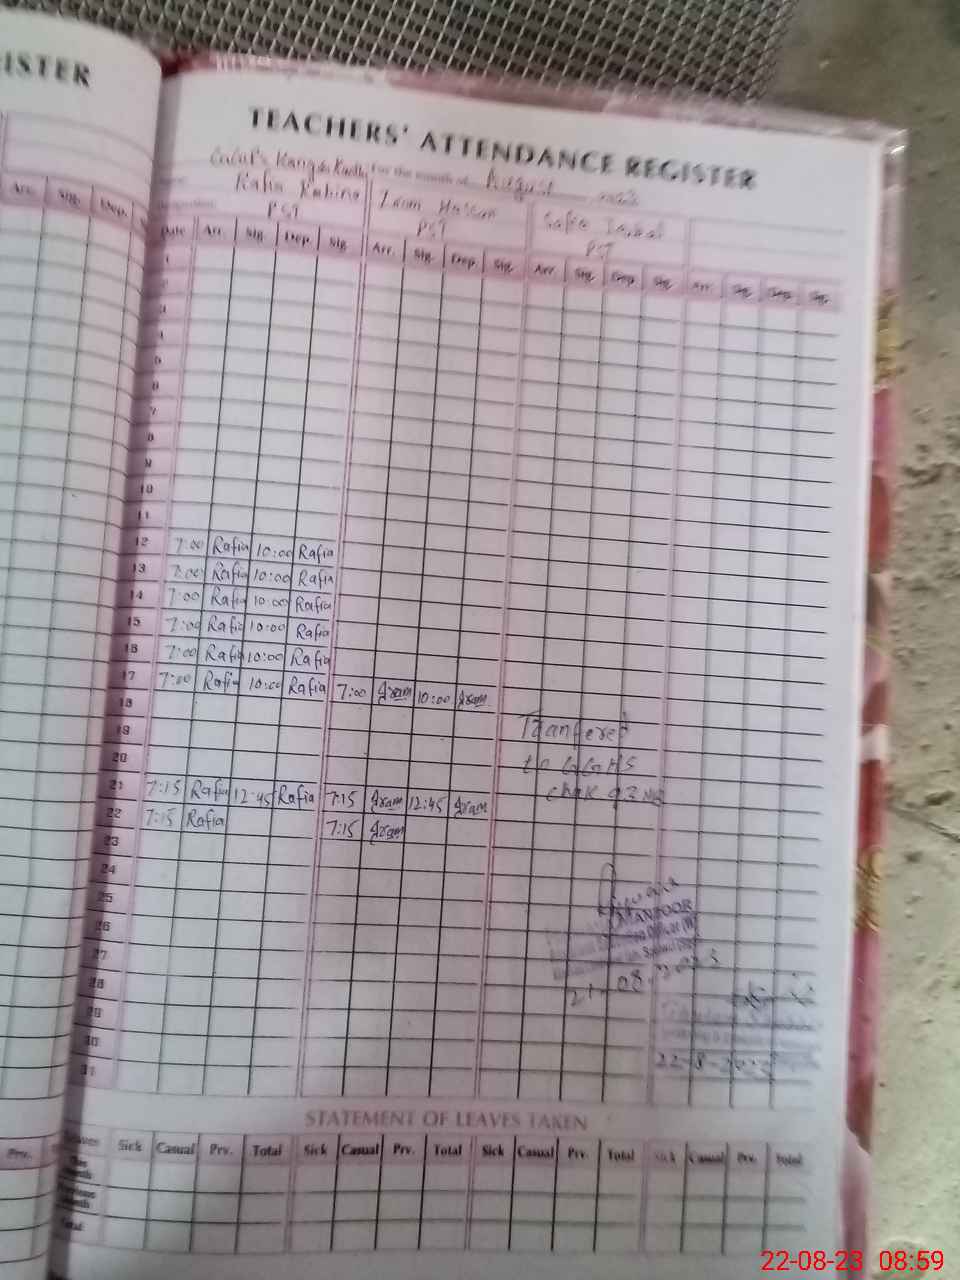 ISTER
TEACHERS' ATTENDANCE REGISTER
For the month of August 2023
Rafia Rubina
PST PST PST
Arr. Sig. Dep.
Date Arr. Sig. Dep. Sig. Arr. Sig. Dep. Sig. Arr. Sig. Dep. Sig. Arr. Sig. Dep. Sig.
1
2
3
4
5
6
7
8
9
10
11
12 7:00 Rafia 10:00 Rafia
13 7:00 Rafia 10:00 Rafia
14 7:00 Rafia 10:00 Rafia
15 7:00 Rafia 10:00 Rafia
16 7:00 Rafia 10:00 Rafia
17 7:00 Rafia 10:00 Rafia 7:00 Iram 10:00 Iram
18
19 Tranfered
20 to GGHS
21 7:15 Rafia 12:45 Rafia 7:15 Iram 12:45 Iram chak 93 NB
22 7:15 Rafia 7:15 Iram
23
24
25
26 MANZOOR
27
28 21-08-2023
29
30
31 22-8-2023
STATEMENT OF LEAVES TAKEN
Prv. Leaves Sick Casual Prv. Total Sick Casual Prv. Total Sick Casual Prv. Total Sick Casual Prv. Total
Total
22-08-23 08:59